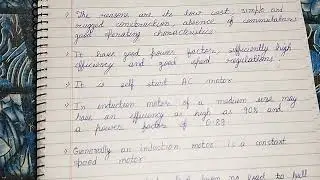 The reasons are its low cost, simple and
rugged construction, absence of commutator
good operating characteristics.
It have good power factor, sufficiently high
efficiency and good speed regulations.
It is self start AC motor
In induction motors of a medium size may
have an efficiency as high as 90% and
a power factor of 0.89
Generally an induction motor is a constant
speed motor.